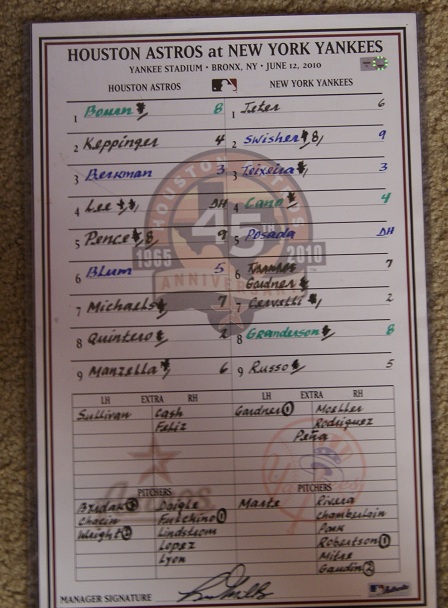 HOUSTON ASTROS at NEW YORK YANKEES
YANKEE STADIUM • BRONX, NY • JUNE 12, 2010
HOUSTON ASTROS NEW YORK YANKEES
1 Bourn 8 1 Jeter 6
2 Keppinger 4 2 Swisher 8, 9
3 Berkman 3 3 Teixeira 3
4 Lee DH 4 Cano 4
5 Pence 8 9 5 Posada DH
6 Blum 5 6 Thames 7
Gardner
7 Michaels 7 7 Cervelli 2
8 Quintero 2 8 Granderson 8
9 Manzella 6 9 Russo 5
HOUSTON ASTROS
45th
1965 2010
ANNIVERSARY
LH EXTRA RH LH EXTRA RH
Sullivan Cash Gardner 1 Moeller
Feliz Rodriguez
Peña
PITCHERS PITCHERS
Byrdak Daigle Marte Rivera
Chacin Fulchino Chamberlain
Wright Lindstrom Park
Lopez Robertson 1
Lyon Mitre
Gaudin 2
MANAGER SIGNATURE